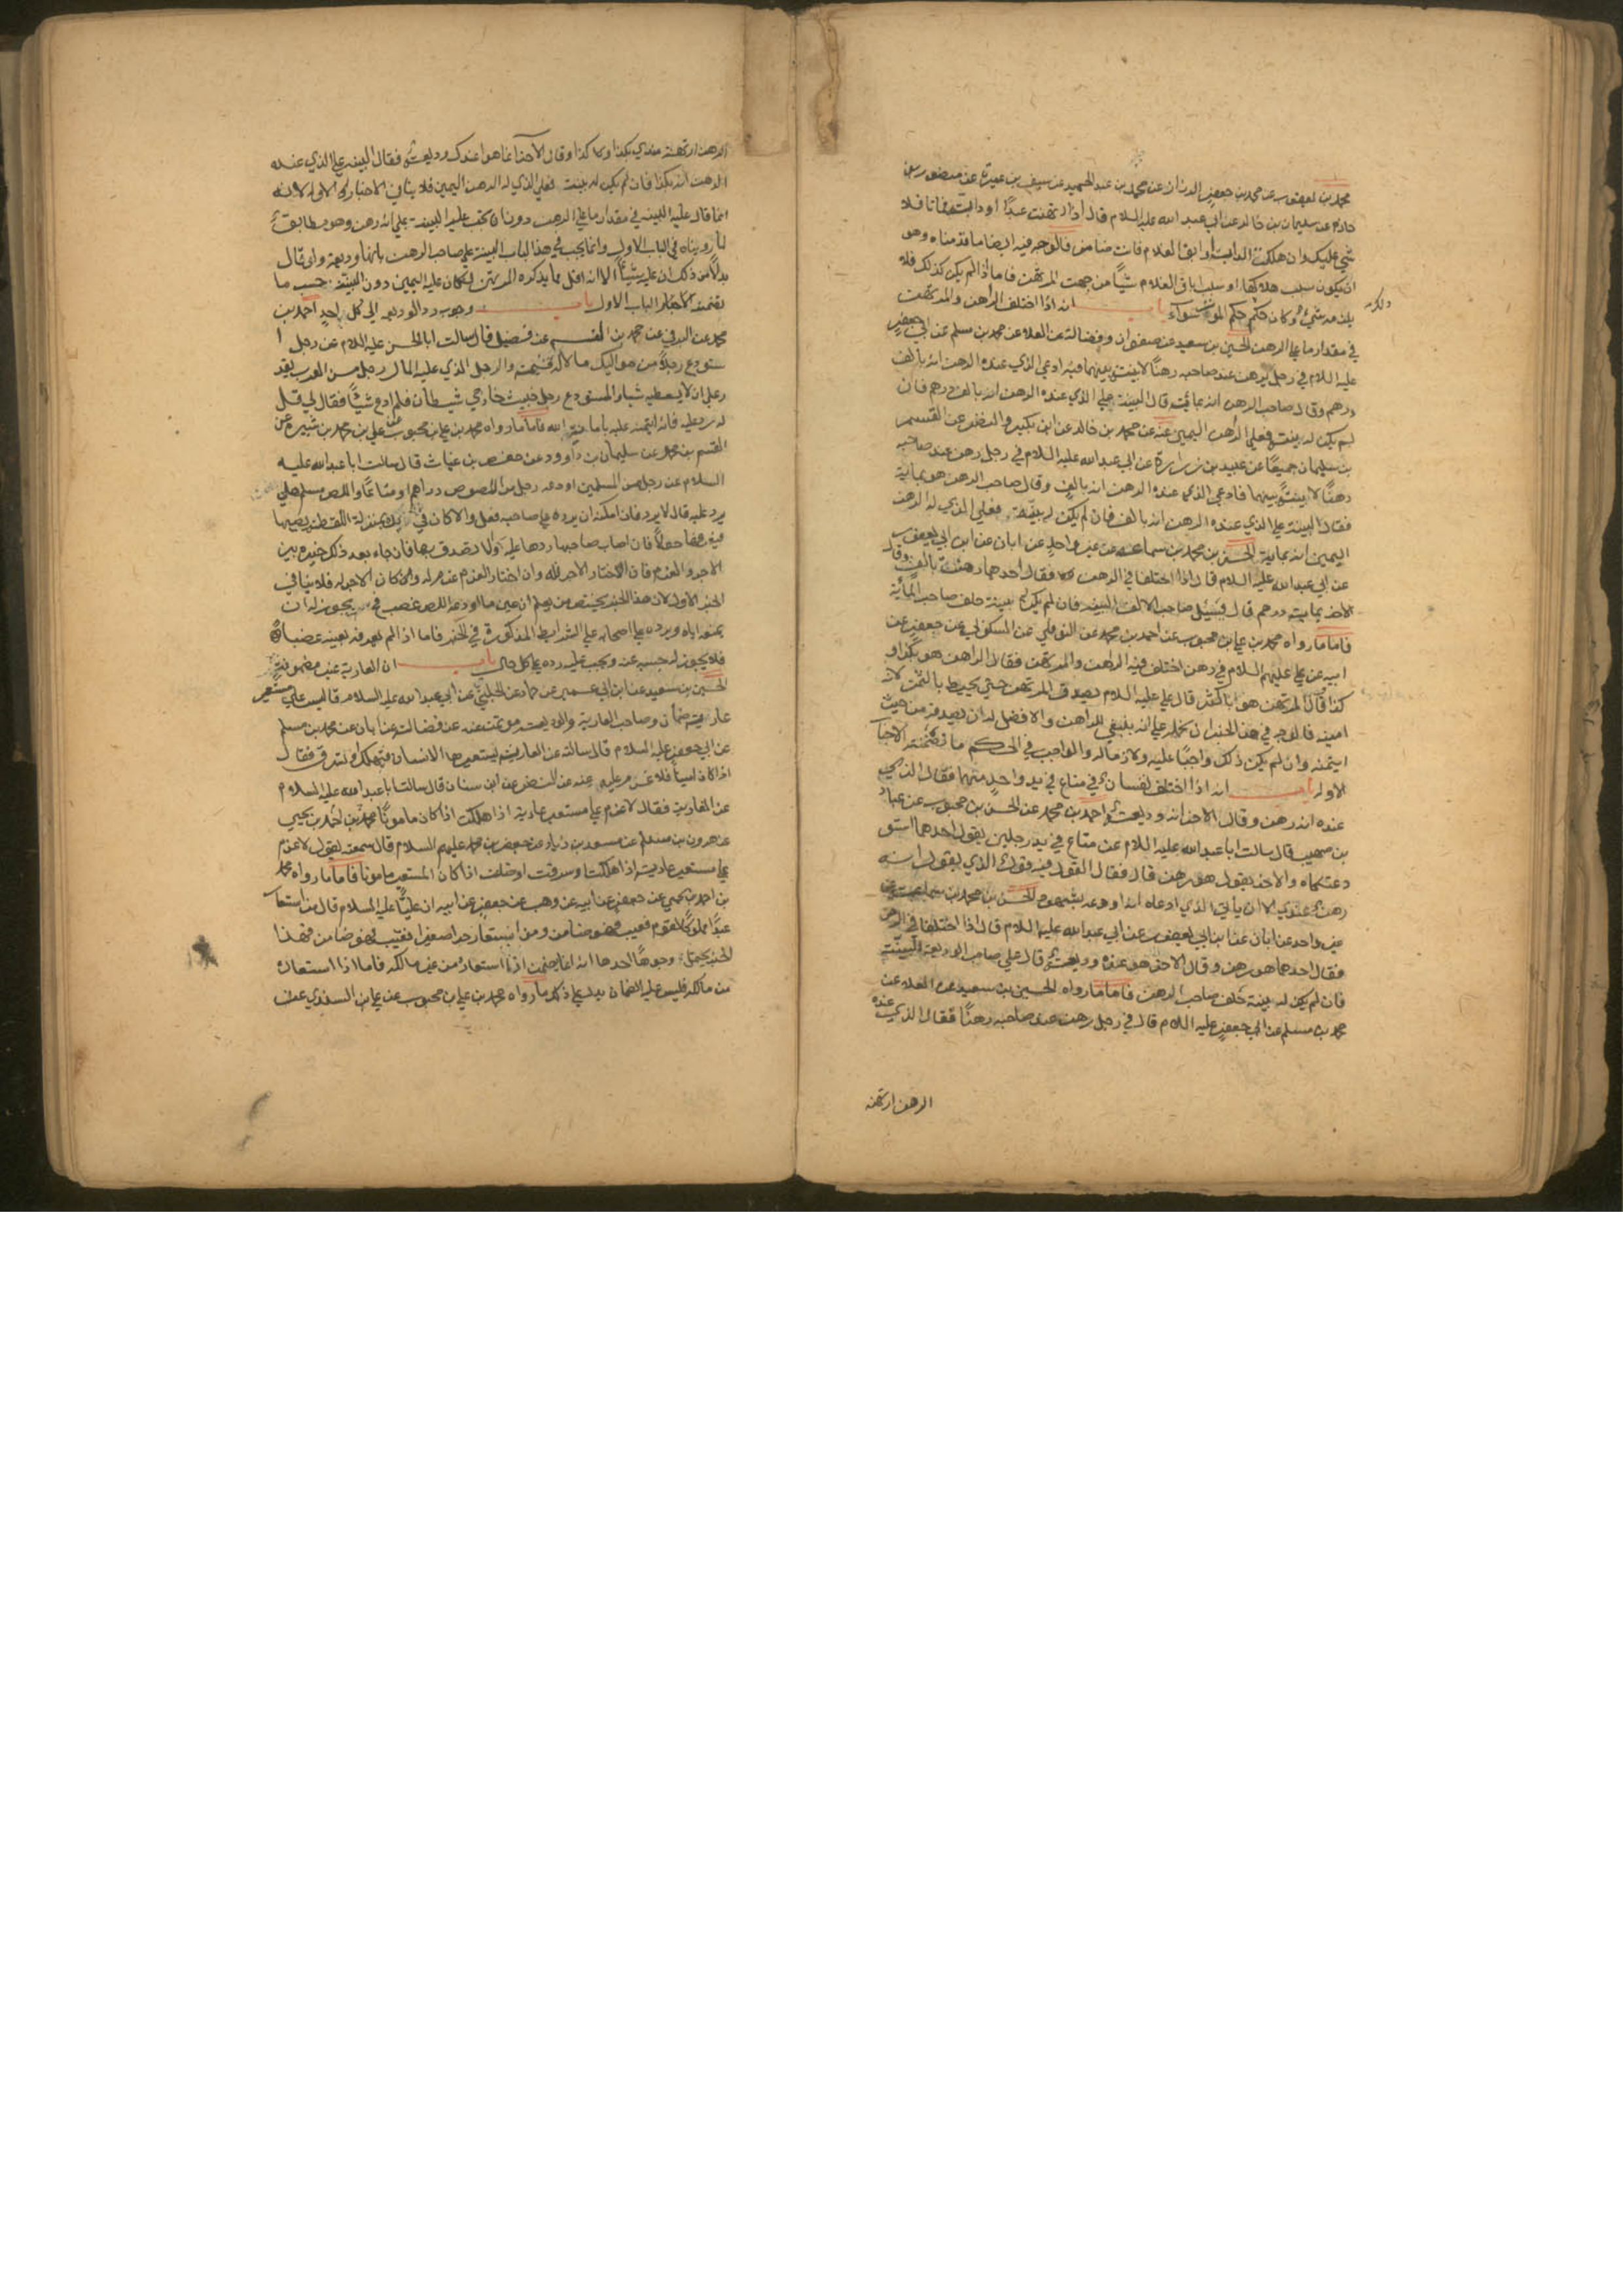 محمد بن يعقوب عن محمد بن جعفر الرزاز عن محمد بن عبد الحميد عن سيف بن عميرة عن منصور بن
حازم عن سليمان بن خالد عن ابي عبد الله عليه السلام قال اذا ارتهنت عبدًا او دابة فماتا فلا
شي عليك وان هلكت الدابة او ابق الغلام فانت ضامن فالوجه فيه ايضا ما قدمناه وهو
ان يكون سبب هلاكها او سبب اباق الغلام شيأ من جهت المرتهن فاما اذا لم يكن كذلك فلا
يلزمه شيء وكان حكم حكم الموت سواء باب انه اذا اختلف الراهن والمرتهن
في مقدار ما على الرهن الحسين بن سعيد عن صفوان وفضالة عن العلا عن محمد بن مسلم عن ابي جعفر
عليه السلام في رجل يرهن عند صاحبه رهنًا لا بينة بينهما فيه ادعى الذي عنده الرهن انه بالف
درهم وقال صاحب الرهن انه بمائة قال البينة على الذي عنده الرهن انه بالف درهم فان
لم يكن له بينة فعلى الراهن اليمين عنه عن محمد بن خالد عن ابن بكير والنضر عن القسم
بن سليمان جميعًا عن عبيد بن زرارة عن ابي عبد الله عليه السلام في رجل رهن عند صاحبه
رهنًا لا بينة بينهما فادعى الذي عنده الرهن انه بالف وقال صاحب الرهن هو بماية
فقال البينة على الذي عنده الرهن انه بالف فان لم يكن له بينة فعلى الذي له الرهن
اليمين انه بماية الحسن بن محمد بن سماعة عن غير واحد عن ابان عن ابن ابي يعفور
عن ابي عبد الله عليه السلام قال اذا اختلفا في الرهن فقال احدهما رهنته بالف وقال
الاخر بماية درهم قال فيسئل صاحب الالف البينة فان لم يكن له بينة حلف صاحب المأية
فاما ما رواه محمد بن علي بن محبوب عن احمد بن محمد عن النوفلي عن السكوني عن جعفر عن
ابيه عن علي عليهم السلام في رهن اختلف فيه الراهن والمرتهن فقال الراهن هو بكذا و
كذا وقال المرتهن هو باكثر قال علي عليه السلام يصدق المرتهن حتى يحيط بالثمن لانه
امينه فالوجه في هذا الخبر ان نحمله على انه ينبغي للراهن والافضل له ان يصدقه من حيث
ايتمنه وان لم يكن ذلك واجبًا عليه ولازماله والواجب في الحكم ما تضمنته الاخبار
الاوله باب انه اذا اختلف نفسان في متاع في يد واحد منهما فقال الذي
عنده انه رهن وقال الاخر انه وديعة احمد بن محمد عن الحسن بن محبوب عن عباد
بن صهيب قال سالت ابا عبد الله عليه السلام عن متاع في يد رجلين يقول احدهما استو
دعتكماه والاخر يقول هو رهن قال فقال القول فيه قول الذي يقول انه
رهن عندي الا ان ياتي الذي ادعاه انه اودعه بشهود الحسن بن محمد بن سماعة عن
غير واحد عن ابان عن ابن ابي يعفور عن ابي عبد الله عليه السلام قال اذا اختلفا في الرهن
فقال احدهما هو رهن وقال الاخر هو عنده وديعة قال على صاحب الوديعة البينة
فان لم يكن له بينة حلف صاحب الرهن فاما ما رواه الحسين بن سعيد عن العلاء عن
محمد بن مسلم عن ابي جعفر عليه السلام قال في رجل رهن عند صاحبه رهنًا فقال الذي عنده
الرهن ارتهنه
الرهن ارتهنته عندي بكذا وكذا وقال الآخر انما هو عندك وديعة فقال البينة على الذي عنده
الرهن انه بكذا فان لم يكن له بينة فعلى الذي له الرهن اليمين فلا ينافي الاخبار الاوله لانه
انما قال عليه البينة في مقدار ما على الرهن دون ان تجب عليه البينة على انه رهن وهو مطابق
لما رويناه في الباب الاول وانما يجب في هذا الباب البينة على صاحب الرهن بانها وديعة ولو قال
بدلًا من ذلك ان عليه شيئًا الا انه اقل مما يذكره المرتهن لكان عليه اليمين دون البينة حسب ما
تضمنته الاخبار الباب الاول باب وجوب رد الوديعة الى كل احد احمد بن
محمد عن البرقي عن محمد بن القسم عن فضيل قال سالت ابا الحسن عليه السلام عن رجل ا
ستودع رجلًا من مواليك مالا له قيمة والرجل الذي عليه المال رجل من العرب يقد
ر على ان لا يعطيه شيأ والمستودع رجل خبيث خارجي شيطان فلم ادع شيئًا فقال لي قل
له رد عليه فانه ايتمنه عليه بامانة الله فاما ما رواه محمد بن علي بن محبوب عن علي بن محمد بن شيرة عن
القسم بن محمد عن سليمان بن داوود عن حفص بن غياث قال سالت ابا عبد الله عليه
السلام عن رجل من المسلمين اودعه رجل من اللصوص دراهم او متاعًا واللص مسلم هل
يرد عليه قال لا يرد فان امكنه ان يرده على صاحبه فعل والا كان في يده بمنزلة اللقطة يصيبها
فيعرفها حولًا فان اصاب صاحبها ردها عليه والا تصدق بها فان جاء بعد ذلك خيره بين
الاجر والغرم فان اختار الاجر فله وان اختار الغرم غرم له وكان الاجر له فلا ينافي
الخبر الاول لان هذا الخبر يختص من يعلم ان عين ما اودعه اللص غصب يجوز له ان
يمنعه اياه ويرده على اصحابه على الشرايط المذكورة في الخبر فاما اذا لم يعرفه بعينه غصبًا
فلا يجوز له حبسه عنه ويجب عليه رده على كل حال باب ان العارية غير مضمونة
الحسين بن سعيد عن ابن ابي عمير عن حماد عن الحلبي عن ابي عبد الله عليه السلام قال ليس على مستعير
عارية ضمان وصاحب العارية والوديعة مؤتمن عنه عن فضالة عن ابان عن محمد بن مسلم
عن ابي جعفر عليه السلام قال سالته عن العارية يستعيرها الانسان فتهلك او تسرق فقال
اذا كان امينا فلا غرم عليه عنه عن النضر عن ابن سنان قال سالت ابا عبد الله عليه السلام
عن العارية فقال لا غرم على مستعير عارية اذا هلكت اذا كان مامونًا محمد بن احمد بن يحيى
عن هرون بن مسلم عن مسعدة بن زياد عن جعفر بن محمد عليهم السلام قال سمعته يقول لا غرم
على مستعير عارية اذا هلكت او سرقت او ضلت اذا كان المستعير مامونا فاما ما رواه محمد
بن احمد بن يحيى عن جعفر عن ابيه عن وهب عن جعفر عن ابيه ان عليًا عليه السلام قال من استعار
عبدًا مملوكًا لقوم فعيب فهو ضامن ومن استعار حرا صغيرا فعيب فهو ضامن فهذا
الخبر يحتمل وجوهًا احدها انه انما يضمن اذا استعاره من غير مالكه فاما اذا استعاره
من مالكه فليس عليه الضمان يدل على ذلك ما رواه محمد بن علي بن محبوب عن علي بن السندي عن